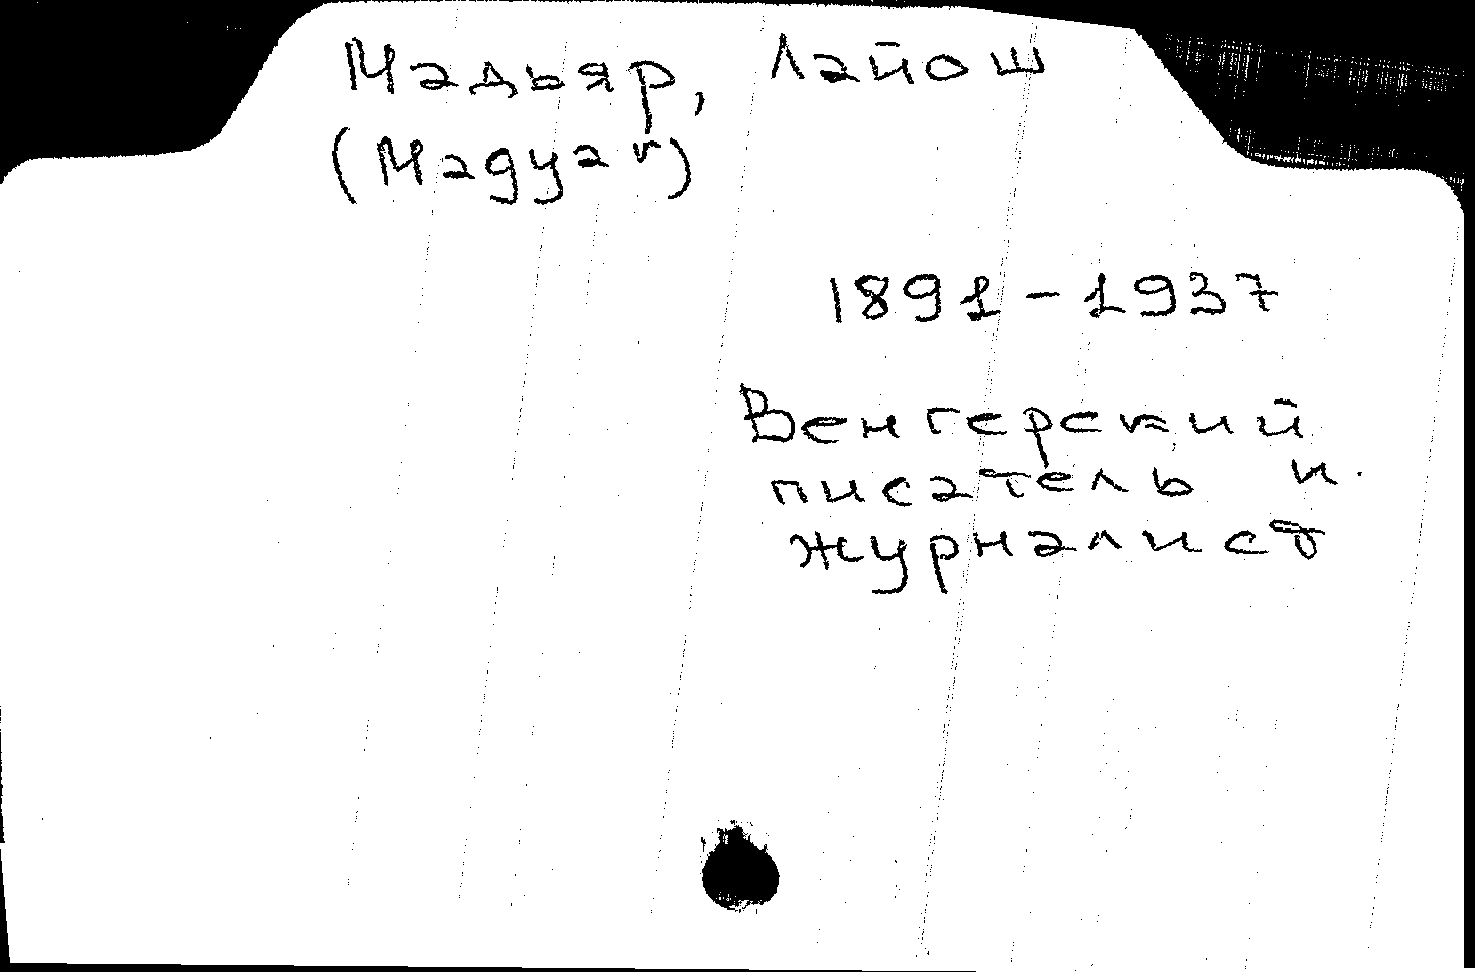 Мадьяр, Лайош
(Magyar)
1891-1937
Венгерский
писатель и
журналист